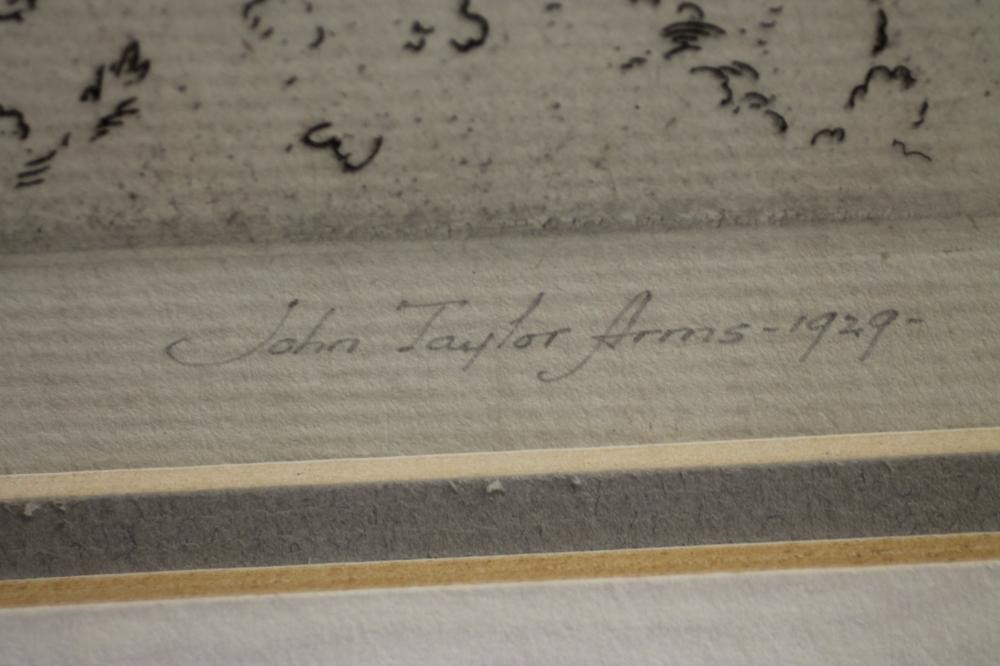 John Taylor Arms-1929-